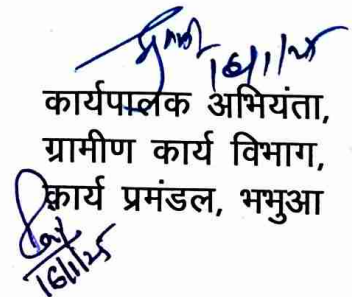 16/1/25
कार्यपालक अभियंता,
ग्रामीण कार्य विभाग,
कार्य प्रमंडल, भभुआ
16/1/25